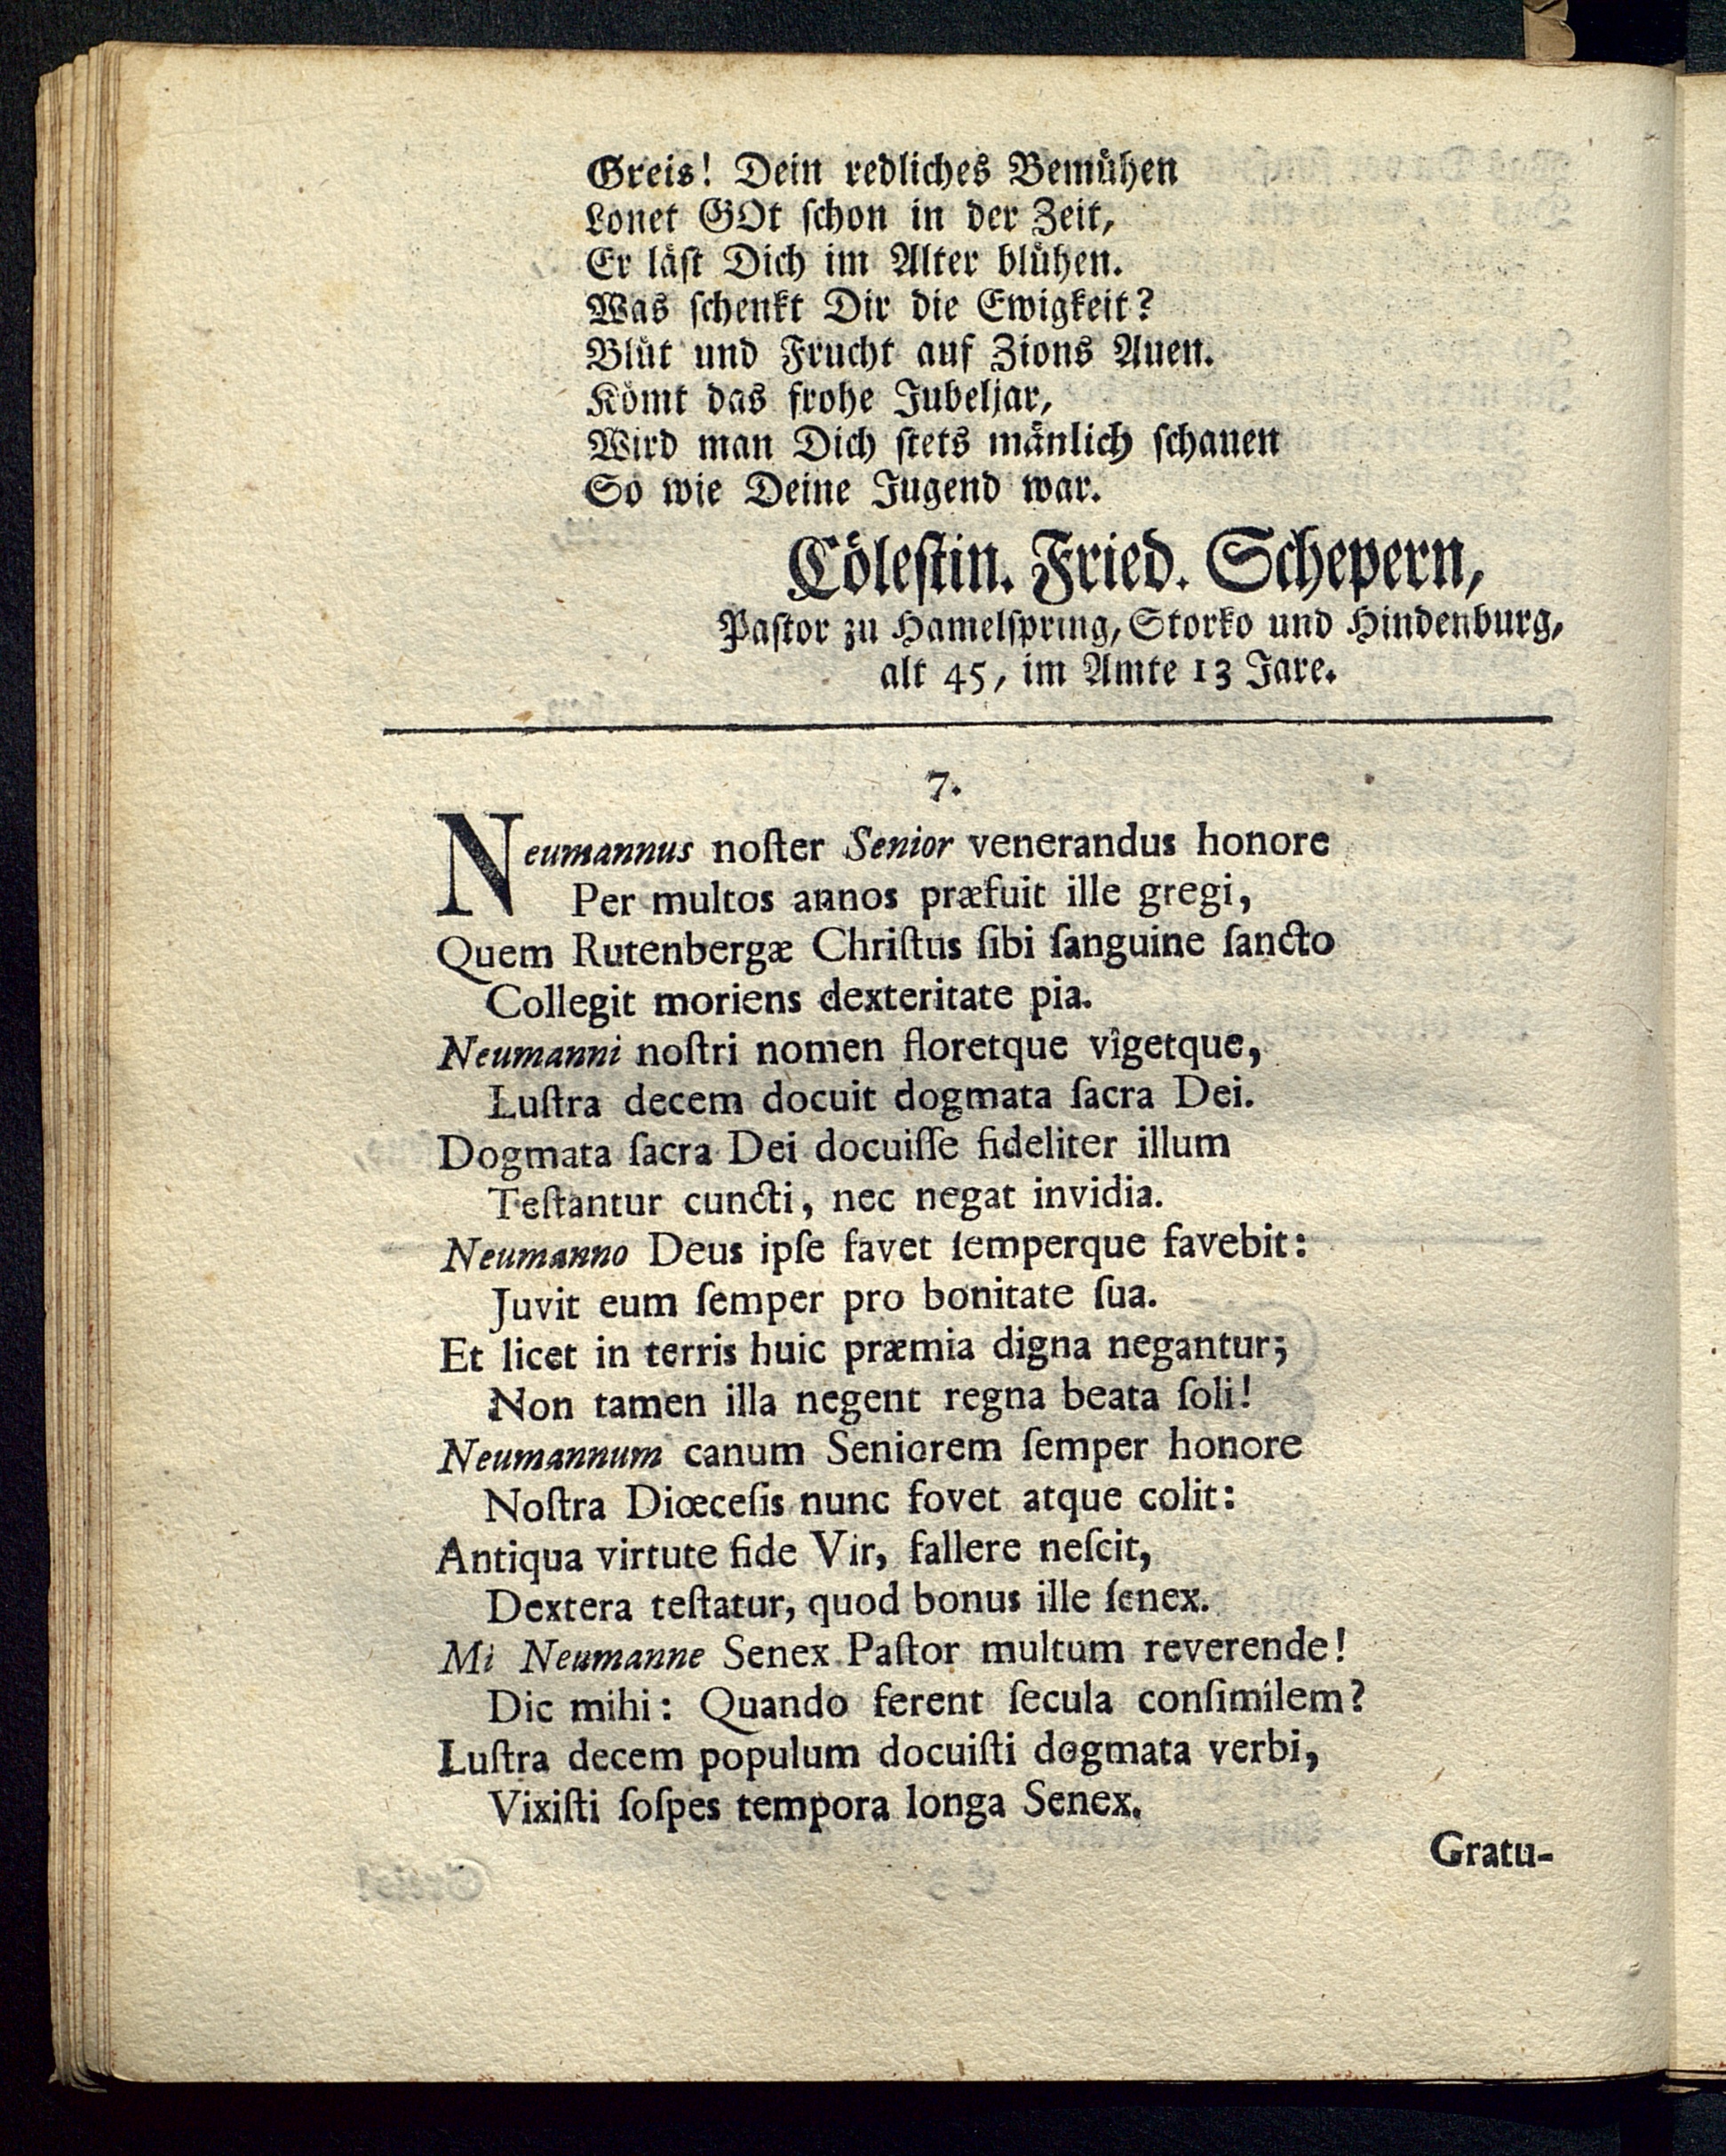 Greis! Dein redliches Bemühen
Lonet GOt ſchon in der Zeit,
Er läſt Dich im Alter blühen.
Was ſchenkt Dir die Ewigkeit?
Blüt und Frucht auf Zions Auen.
Kömt das frohe Jubeljar,
Wird man Dich ſtets mänlich ſchauen
So wie Deine Jugend war.
Cöleſtin. Fried. Schepern,
Paſtor zu Hamelſpring, Storko und Hindenburg,
alt 45, im Amte 13 Jare.
7.
Neumannus noſter Senior venerandus honore
Per multos annos præfuit ille gregi,
Quem Rutenbergæ Chriſtus ſibi ſanguine ſancto
Collegit moriens dexteritate pia.
Neumanni noſtri nomen floretque vîgetque,
Luſtra decem docuit dogmata ſacra Dei.
Dogmata ſacra Dei docuiſſe fideliter illum
Teſtantur cuncti, nec negat invidia.
Neumanno Deus ipſe favet ſemperque favebit:
Juvit eum ſemper pro bonitate ſua.
Et licet in terris huic præmia digna negantur;
Non tamen illa negent regna beata ſoli!
Neumannum canum Seniorem ſemper honore
Noſtra Diœceſis nunc fovet atque colit:
Antiqua virtute fide Vir, fallere neſcit,
Dextera teſtatur, quod bonus ille ſenex.
Mi Neumanne Senex Paſtor multum reverende!
Dic mihi: Quando ferent ſecula conſimilem?
Luſtra decem populum docuiſti dogmata verbi,
Vixiſti ſoſpes tempora longa Senex.
Gratu-